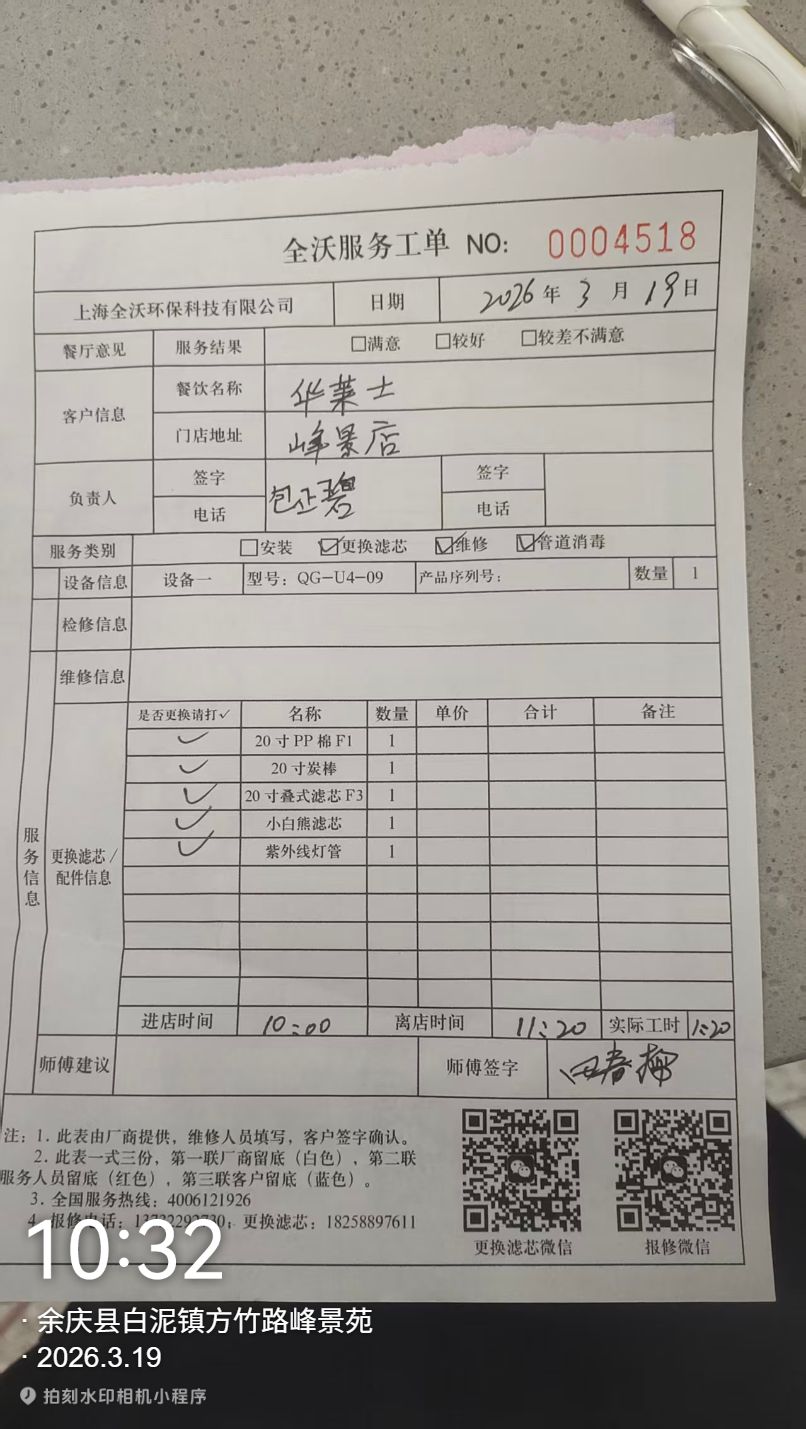 全沃服务工单 NO: 0004518
上海全沃环保科技有限公司 日期 2026年3月19日
餐厅意见 服务结果 □满意 □较好 □较差不满意
客户信息 餐饮名称 华莱士
门店地址 峰景店
负责人 签字 包正碧 签字
电话 电话
服务类别 □安装 ☑更换滤芯 ☑维修 ☑管道消毒
设备信息 设备一 型号：QG-U4-09 产品序列号： 数量 1
检修信息
维修信息
服务信息 更换滤芯/配件信息
是否更换请打✓ 名称 数量 单价 合计 备注
✓ 20寸PP棉F1 1
✓ 20寸炭棒 1
✓ 20寸叠式滤芯F3 1
✓ 小白熊滤芯 1
✓ 紫外线灯管 1
进店时间 10:00 离店时间 11:20 实际工时 1:20
师傅建议 师傅签字 田春梅
注：1. 此表由厂商提供，维修人员填写，客户签字确认。
2. 此表一式三份，第一联厂商留底（白色），第二联
服务人员留底（红色），第三联客户留底（蓝色）。
3. 全国服务热线：4006121926
4. 报修电话： 更换滤芯：18258897611
更换滤芯微信 报修微信
10:32
· 余庆县白泥镇方竹路峰景苑
· 2026.3.19
拍刻水印相机小程序